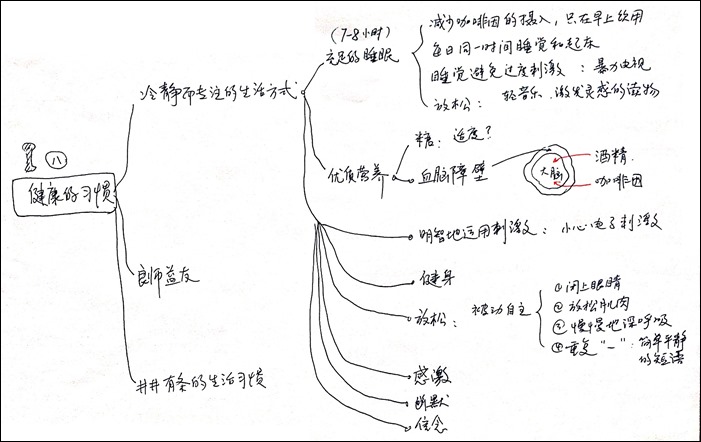 八
健康的习惯
冷静而专注的生活方式
(7-8小时)
充足的睡眠
减少咖啡因的摄入,只在早上饮用
每日同一时间睡觉和起床
睡觉避免过度刺激:暴力电视
放松:轻音乐、激发灵感的读物
优质营养
糖:适度?
血脑障壁
大脑
酒精
咖啡因
明智地运用刺激:小心电子刺激
健身
放松:被动自主
①闭上眼睛
②放松肌肉
③慢慢地深呼吸
④重复“一”:简单平静
的短语
感激
幽默
信念
良师益友
井井有条的生活习惯